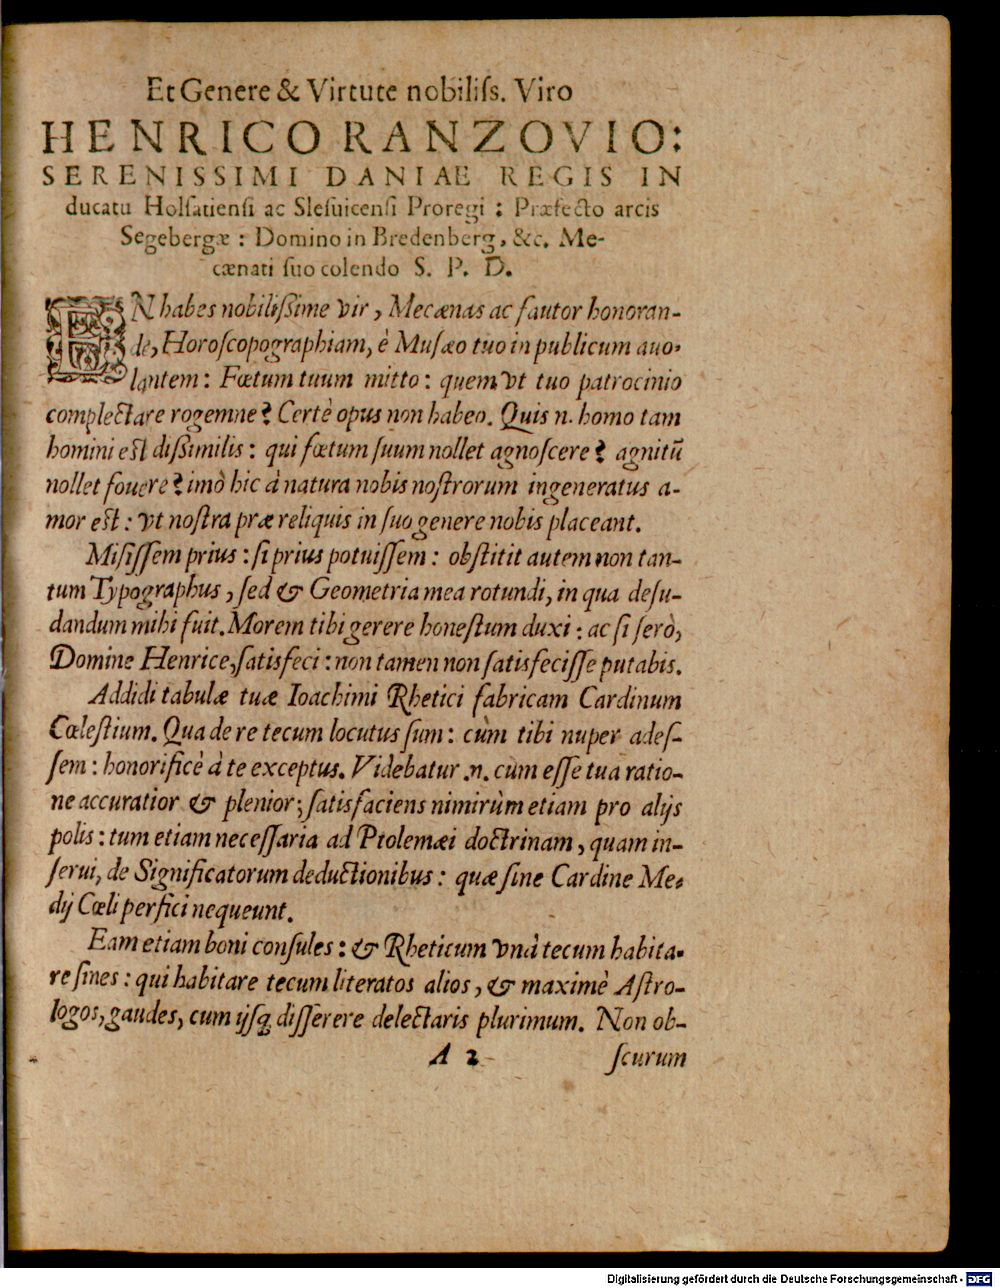 Et Genere & Virtute nobiliſs. Viro
HENRICO RANZOVIO:
SERENISSIMI DANIAE REGIS IN
ducatu Holſatienſi ac Sleſuicenſi Proregi : Præfecto arcis
Segebergæ : Domino in Bredenberg, &c. Me-
cænati ſuo colendo S. P. D.
EN habes nobiliſſime vir, Mecænas ac fautor honoran-
de, Horoſcopographiam, è Muſæo tuo in publicum auo-
lantem : Fœtum tuum mitto : quem vt tuo patrocinio
complectare rogemne? Certè opus non habeo. Quis n. homo tam
homini eſt diſſimilis : qui fœtum ſuum nollet agnoſcere? agnitũ
nollet fouere? imò hic à natura nobis noſtrorum ingeneratus a-
mor eſt : vt noſtra præ reliquis in ſuo genere nobis placeant.
Miſiſſem prius : ſi prius potuiſſem : obſtitit autem non tan-
tum Typographus, ſed & Geometria mea rotundi, in qua deſu-
dandum mihi fuit. Morem tibi gerere honeſtum duxi : ac ſi ſerò,
Domine Henrice, ſatisfeci : non tamen non ſatisfeciſſe putabis.
Addidi tabulæ tuæ Ioachimi Rhetici fabricam Cardinum
Cœleſtium. Qua de re tecum locutus ſum : cùm tibi nuper adeſ-
ſem : honorificè à te exceptus. Videbatur .n. cùm eſſe tua ratio-
ne accuratior & plenior; ſatisfaciens nimirùm etiam pro alijs
polis : tum etiam neceſſaria ad Ptolemæi doctrinam, quam in-
ſerui, de Significatorum deductionibus : quæ ſine Cardine Me-
dij Cœli perfici nequeunt.
Eam etiam boni conſules : & Rheticum vnà tecum habita-
re ſines : qui habitare tecum literatos alios, & maximè Aſtro-
logos, gaudes, cum ijsq́; diſſerere delectaris plurimum. Non ob-
A 2 ſcurum
Digitalisierung gefördert durch die Deutsche Forschungsgemeinschaft - DFG